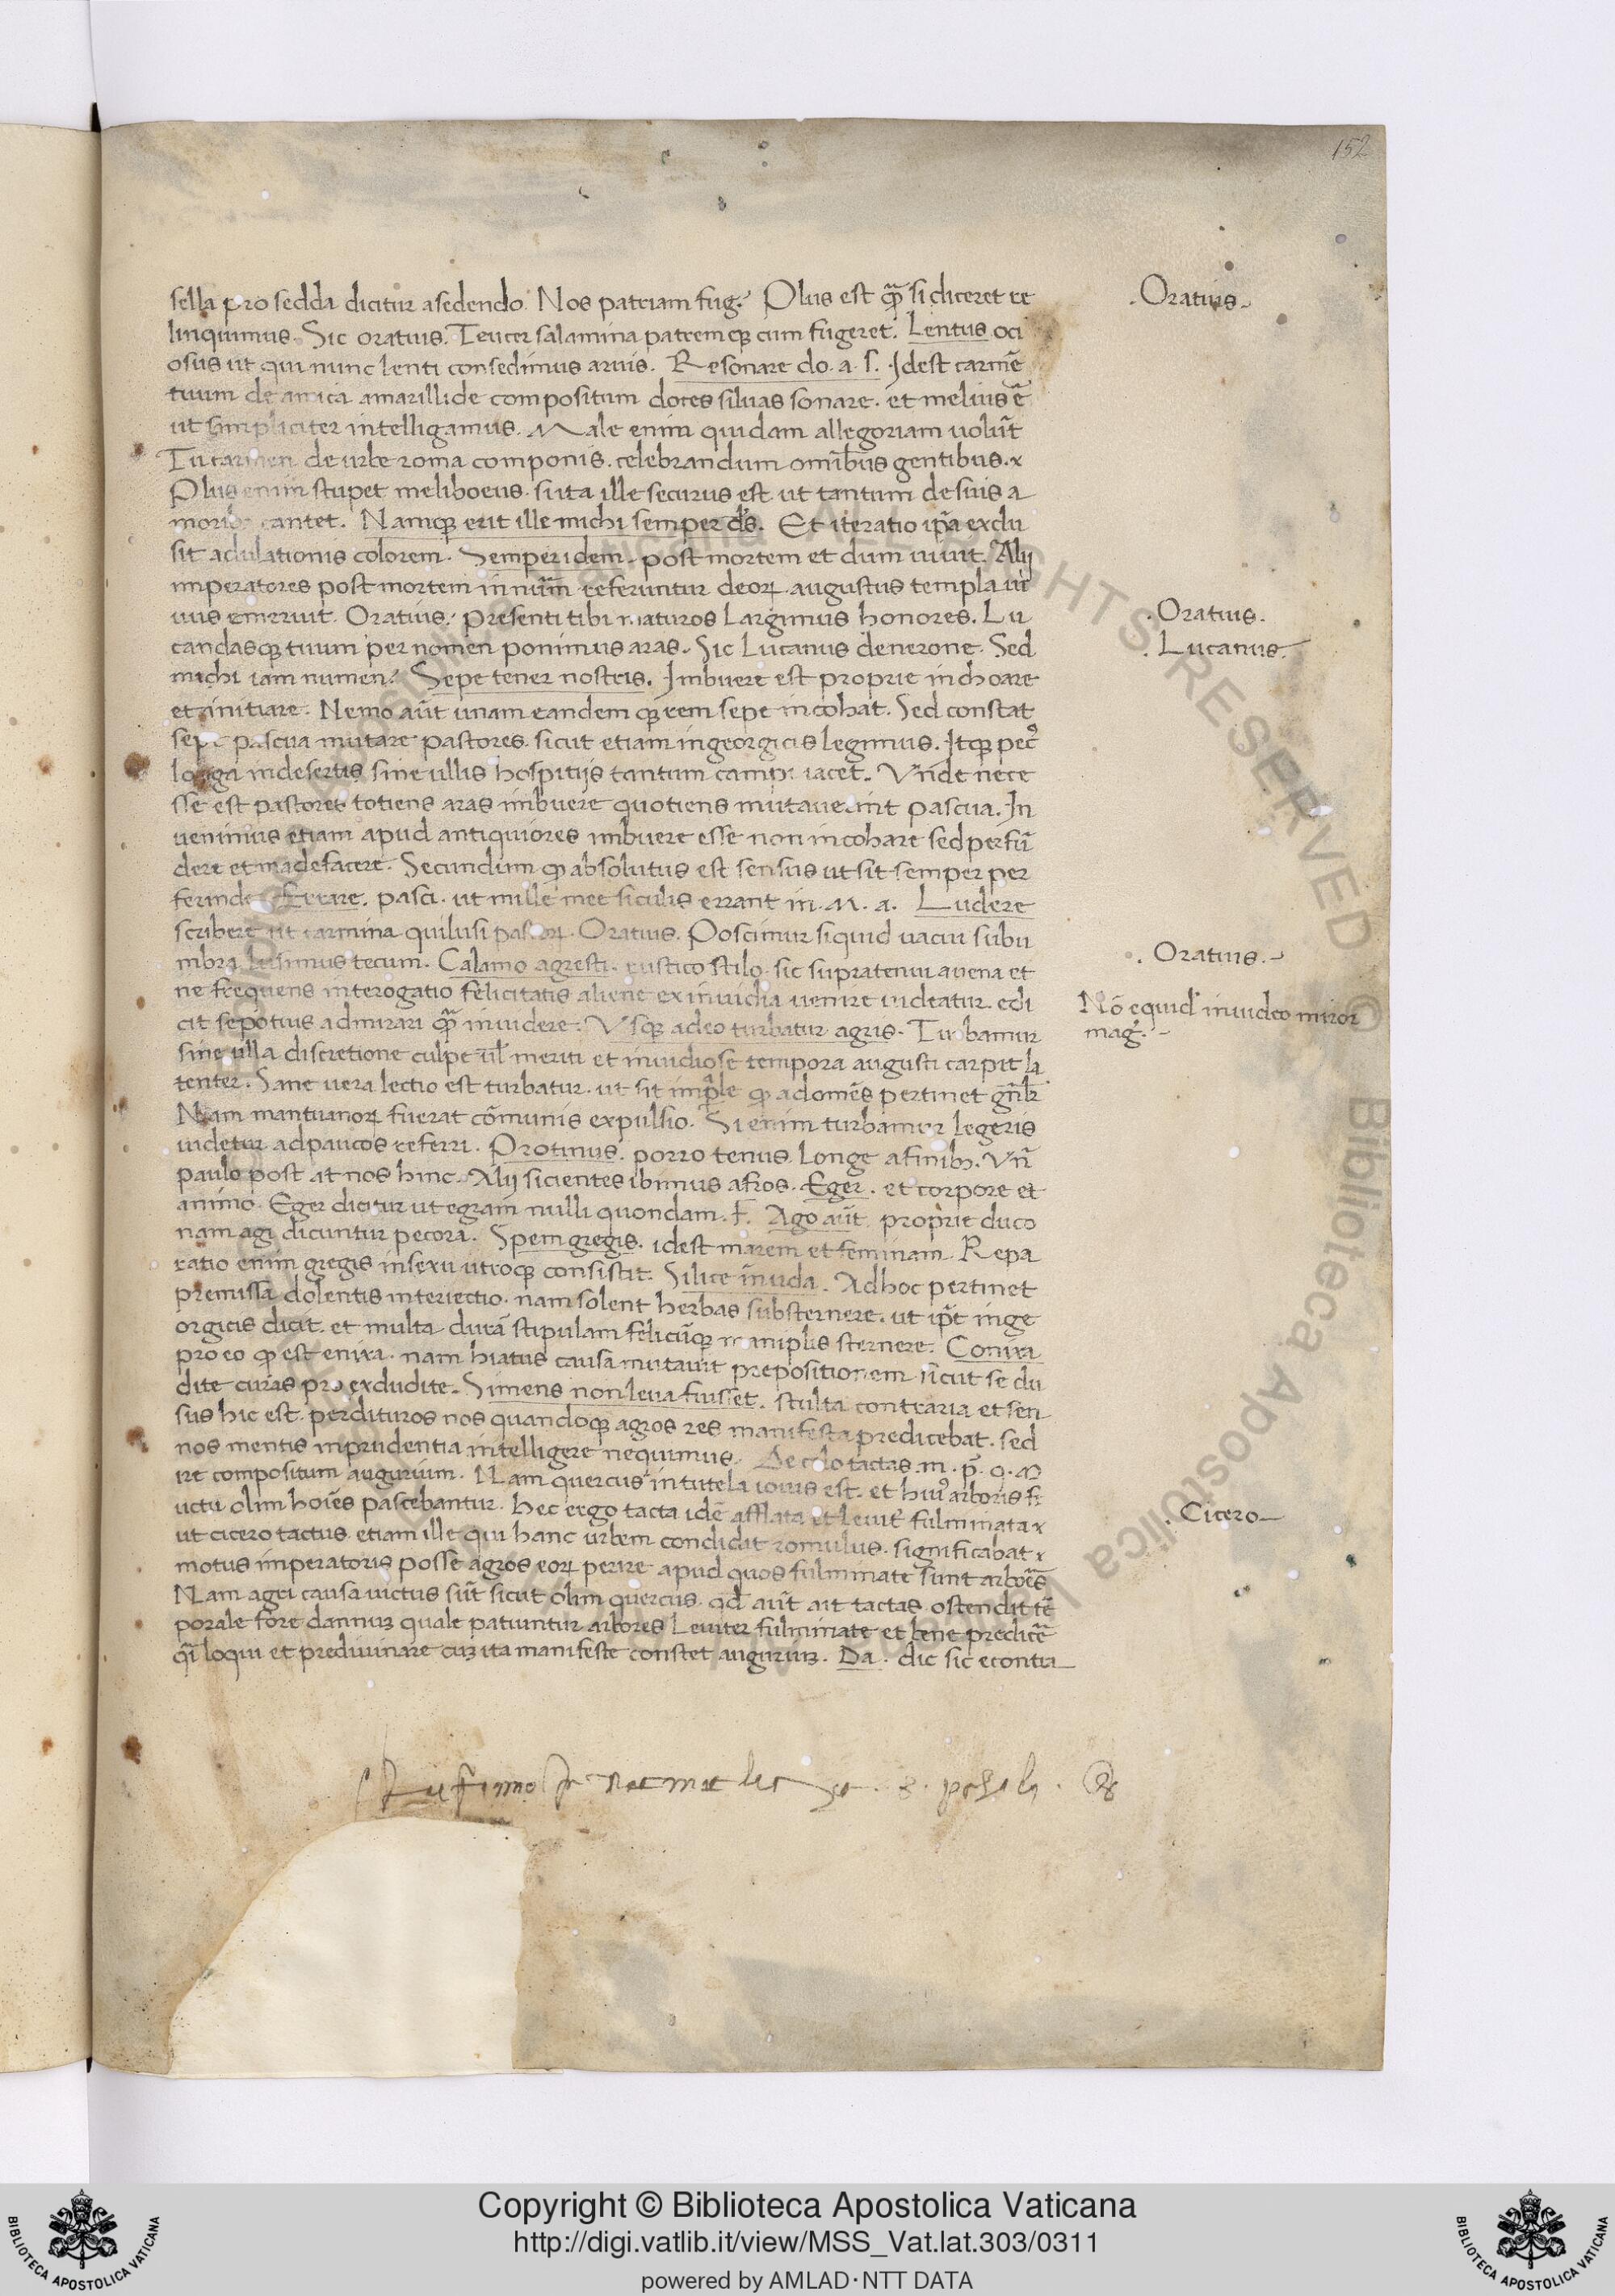 152
sella pro sedda dicitur a sedendo. Nos patriam fug. Plus est qͣ̄ si diceret re
linquimus. Sic oratius. Teucer salamina patremqꝫ cum fugeret. Lentus oci
osus ut qui nunc lenti consedimus aruis. Resonare do. a. s. Idest carmē
tuum de amica amarillide compositum doces siluas sonare. et melius ē
ut simpliciter intelligamus. Male enim quidam allegoriam uolūt
Tu carmen de urbe roma componis. celebrandum omībus gentibus. 
Plus enim stupet meliboeus. si ita ille securus est ut tantum de suis a
morib cantet. Namqꝫ erit ille michi semper d̄s. Et iteratio ip̄a exclu
sit adulationis colorem. Semper idem. post mortem et dum uiuit. Alij
imperatores post mortem in num̄ referuntur deorꝝ augustus templa ui
uus emeruit. Oratius. presenti tibi maturos largimus honores. Lu
candasqꝫ tuum per nomen ponimus aras. Sic Lucanus de nerone. Sed
michi iam numen. Sepe tener nostris. Imbuere est proprie inchoare
et initiare. Nemo aūt unam eandemqꝫ rem sepe incohat. Sed constat
sepe pascua mutare pastores. sicut etiam in georgicis legimus. Itqꝫ pec
longa in desertis sine ullis hospitijs tantum campi iacet. Vnde nece
sse est pastores totiens aras imbuere quotiens mutauerint pascua. In
uenimus etiam apud antiquiores imbuere esse non incohare sed perfū
dere et madefacere. Secundum ꝙ absolutus est sensus ut sit semper per
ferinde Errare. pasci. ut mille mee siculis errant in. M. a. Ludere
scribere ut carmina qui lusi pastorꝝ. Oratius. Poscimur siquid uacui subu
mbra lusimus tecum. Calamo agresti. rustico stilo. sic supra tenui auena et
ne frequens interogatio felicitatis aliene ex inuidia uenire uideatur. edi
cit se potius admirari qͣ̄ inuidere. Vsqꝫ adeo turbatur agris. Turbamur
sine ulla discretione culpe ul̄ meriti et inuidiose tempora augusti carpit la
tenter. Sane uera lectio est turbatur. ut sit imp̄le ꝙ ad omēs pertinet gn̄lr
Nam mantuanorꝝ fuerat cōmunis expulsio. Si enim turbamur legeris
uidetur ad paucos referri. Protinus. porro tenus. longe a finibꝫ. Vn̄
paulo post at nos hinc. Alij sicientes ibimus afros. Eger. et corpore et
animo. Eger dicitur ut egram nulli quondam. f. Ago aūt proprie duco
nam agi dicuntur pecora. Spem gregis. idest marem et feminam. Repa
ratio enim gregis in sexu utroqꝫ consistit. Silice in nuda. Ad hoc pertinet
premissa dolentis interiectio. nam solent herbas substernere. ut ip̄e in ge
orgicis dicit. et multa durā stipulam felicūqꝫ maniplis sternere. Conixa
pro eo ꝙ est enixa. nam hiatus causa mutauit prepositionem. sicut se clu
dite curas pro excludite. Si mens non leua fuisset. stulta contraria et sen
sus hic est. perdituros nos quandoqꝫ agros res manifesta predicebat. sed
nos mentis inprudentia intelligere nequimus. De celo tactas. m. p̄. q. 
re compositum augurium. Nam quercus in tutela iouis est. et hui arboris fr
uctu olim hoiēs pascebantur. hec ergo tacta idē afflata et leuit fulminata 
ut cicero tactus etiam ille qui hanc urbem condidit romulus. significabat 
motus imperatoris posse agros eorꝝ perire apud quos fulminate sunt arboēs
Nam agri causa uictus sūt sicut olim quercus. qd̄ aūt ait tactas ostendit tē
porale fore damnuꝫ quale patiuntur arbores leuiter fulminate et bene predicē
qͥ loqui et prediuinare cuꝫ ita manifeste constet auguriuꝫ. Da. dic sic econtra
.Oratius.
.Oratius.
.Lucanus.
.Oratius.
Nō equid inuideo miror
mag.
.Cicero
Copyright © Biblioteca Apostolica Vaticana
http://digi.vatlib.it/view/MSS_Vat.lat.303/0311
powered by AMLAD·NTT DATA
BIBLIOTECA APOSTOLICA VATICANA
BIBLIOTECA APOSTOLICA VATICANA